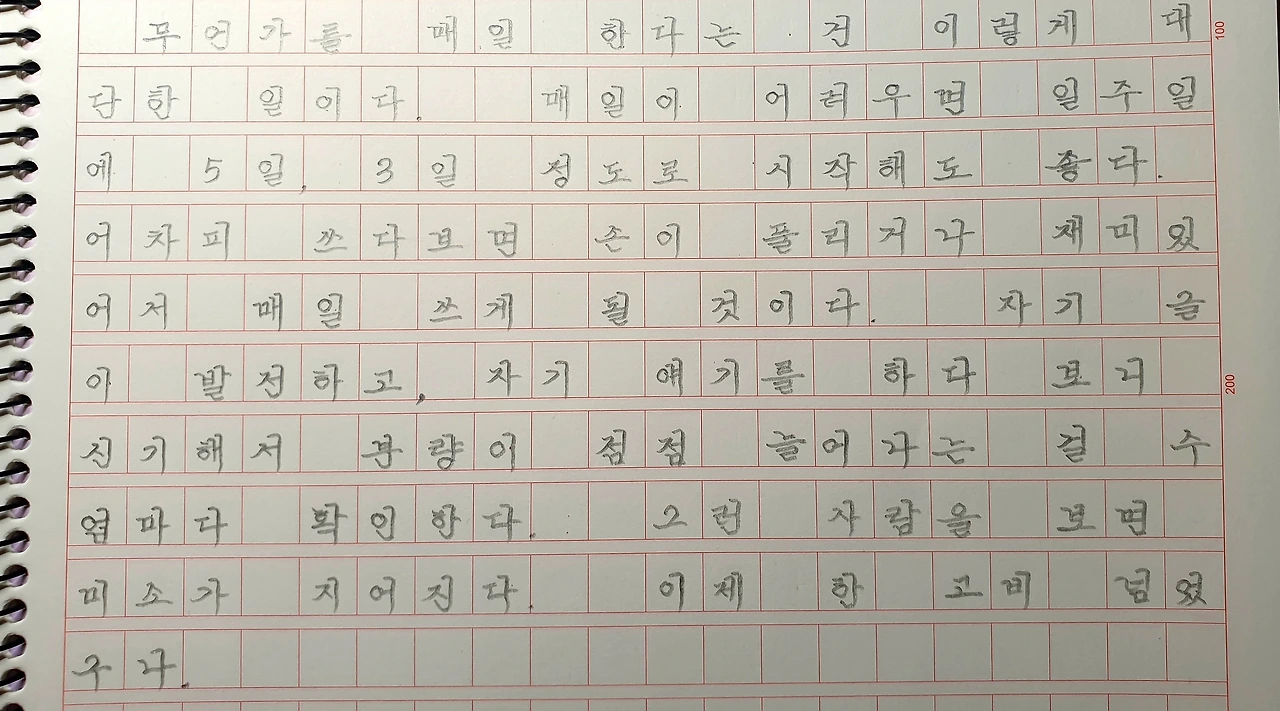 무언가를 매일 한다는 건 이렇게 대
단한 일이다. 매일이 어려우면 일주일
에 5일, 3일 정도로 시작해도 좋다.
어차피 쓰다보면 손이 풀리거나 재미있
어서 매일 쓰게 될 것이다. 자기 글
이 발전하고, 자기 얘기를 하다 보니
신기해서 분량이 점점 늘어나는 걸 수
업마다 확인한다. 그런 사람을 보면
미소가 지어진다. 이제 한 고비 넘었
구나.
100
200